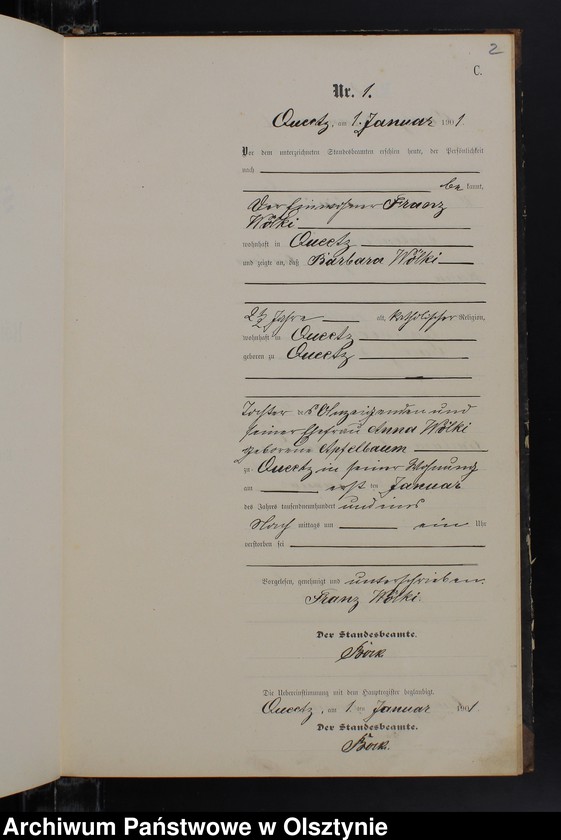 2
C.
Nr. 1.
Queetz, am 1. Januar 1901.
Vor dem unterzeichneten Standesbeamten erschien heute, der Persönlichkeit
nach
be kannt,
Der Einwohner Franz
Wölki
wohnhaft in Queetz
und zeigte an, daß Barbara Wölki
2 1/2 Jahre alt, katholischer Religion,
wohnhaft in Queetz
geboren zu Queetz
Tochter des Anzeigenden und
seiner Ehefrau Anna Wölki
geborene Apfelbaum
zu Queetz in seiner Wohnung
am erst ten Januar
des Jahres tausendneunhundert und eins
Nach mittags um ein Uhr
verstorben sei
Vorgelesen, genehmigt und unterschrieben.
Franz Wölki.
Der Standesbeamte.
Die Uebereinstimmung mit dem Hauptregister beglaubigt.
Queetz, am 1. ten Januar 1901.
Der Standesbeamte.
Archiwum Państwowe w Olsztynie